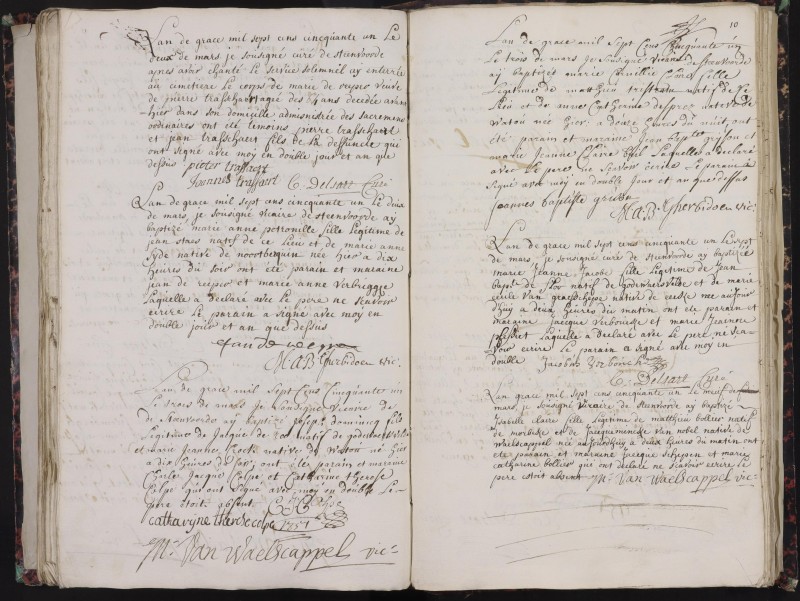 Lan de grace mil sept cens cincquante un le
deux de mars je sousigné curé de steenvoorde
apres avoir chanté le service solemnel ay enterré
au cimetiere le corps de marie de reiper veuve
de pierre trasschaert agée des ans decedée
hier dans son domicille administrée des sacremens
ordinaires ont été temoins pierre trasschaert
et jean trasschaert fils de la deffuncte qui
ont signé avec moy en double jour et an que
dessus pieter trassaert
Joannes trassaert C. Delsart Curé
Lan de grace mil sept cens cincquante un le deux
de mars, je sousigné vicaire de steenvoorde aÿ
baptizé marie anne petronille fille legitime de
jean staes natif de ce lieu et de marie anne
native de noortberquin née hier a dix
heures du soir ont été parain et maraine
jean de reiper et marie anne verbregge
laquelle a declaré avec le pere ne scavoir
ecrire le parain a signé avec moy en
double jour et an que dessus
M.A.B. Gherbidoen vic:
Lan de grace mil sept cens cincquante un
le trois de mars je sousigné vicaire de
de steenvoorde ay baptizé joseph dominicq fils
legitime de Jacque de natif de
et marie jeanne natife de Watou né hier
a dix heures du soir ont été parain et maraine
Charles Jacque Colpe et Catharine therese
Colpe qui ont signé avec moy en double le
pere etoit absent
catharyne therese colpe 1751
M. Van Waelscappel vic:
10
Lan de grace mil sept cens cincquante un
le trois de mars je sousigné vicaire de steenvoorde
ay baptizé marie Camille fille
legitime de mathieu tristram natif de ce
lieu et de marie Catherine desprez native de
Watou née hier a douze heures du nuit, ont
été parain et maraine jean
marie Jeanne Claire laquelle a declaré
avec le pere ne scavoir ecrire le parain a
signé avec moy en double jour et an que dessus
Joannes baptiste
M.A.B. Gherbidoen vic:
Lan de grace mil sept cens cincquante un le
de mars, je sousigné curé de steenvoorde ay baptizée
marie Jeanne Jacobe fille legitime de Jean
bapt. de natif de godewaersvelde et de marie
cecile van native de née aujour
dhuy a deux heures du matin ont été parain et
maraine jacque verbouck et marie jeanne
laquelle a declaré avec le pere ne sca-
voir ecrire le parain a signé avec moy en
double Jacobus
C. Delsart Curé
Lan de grace mil sept cens cincquante un le neuf de
mars, je sousigné vicaire de steenvoorde ay baptizé
Isabelle claire fille legitime de matthieu bollier natif
de morbeke et de jacqueminne van nobel native de
Waelscappel née aujourdhuy a deux heures du matin ont
été parain et maraine jacque schepen et marie
catharine bollier qui ont declaré ne scavoir ecrire le
pere estoit absent M. Van Waelscappel vic: